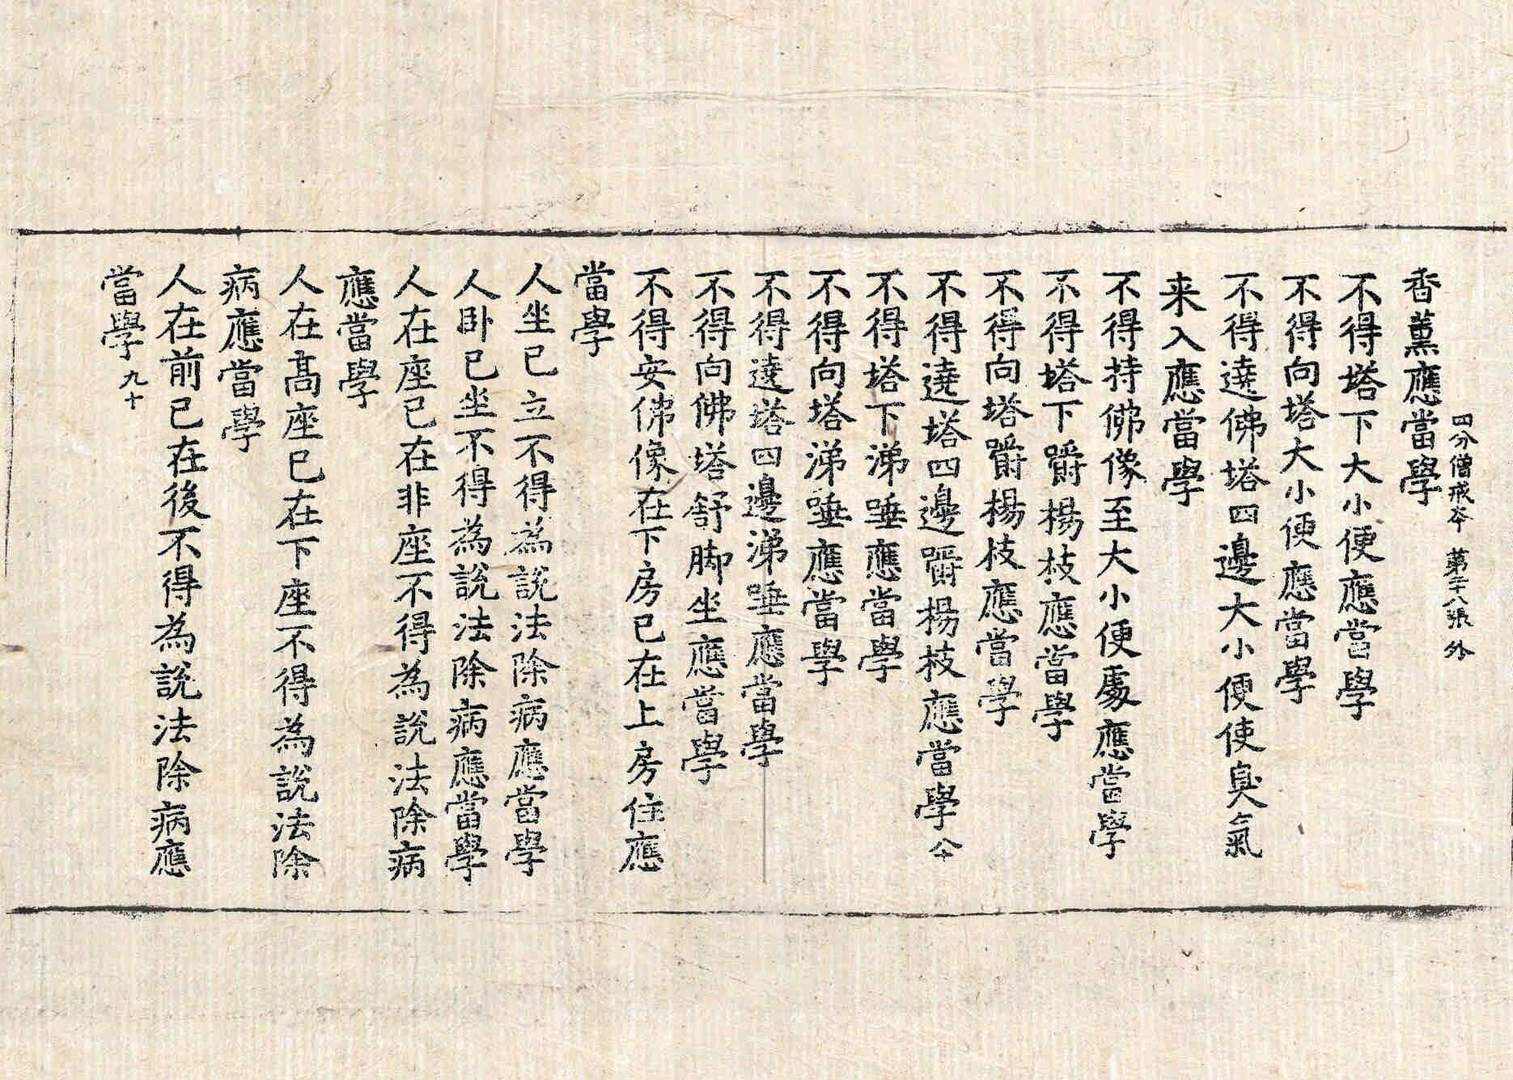 四分僧戒本 第二十八張 外
香薰應當學
不得塔下大小便應當學
不得向塔大小便應當學
不得遶佛塔四邊大小便使臭氣
来入應當學
不得持佛像至大小便處應當學
不得塔下嚼楊枝應當學
不得向塔嚼楊枝應當學
不得遶塔四邊嚼楊枝應當學 八十
不得塔下涕唾應當學
不得向塔涕唾應當學
不得遶塔四邊涕唾應當學
不得向佛塔舒脚坐應當學
不得安佛像在下房已在上房住應
當學
人坐已立不得為說法除病應當學
人卧已坐不得為說法除病應當學
人在座已在非座不得為說法除病
應當學
人在髙座已在下座不得為說法除
病應當學
人在前已在後不得為說法除病應
當學 九十